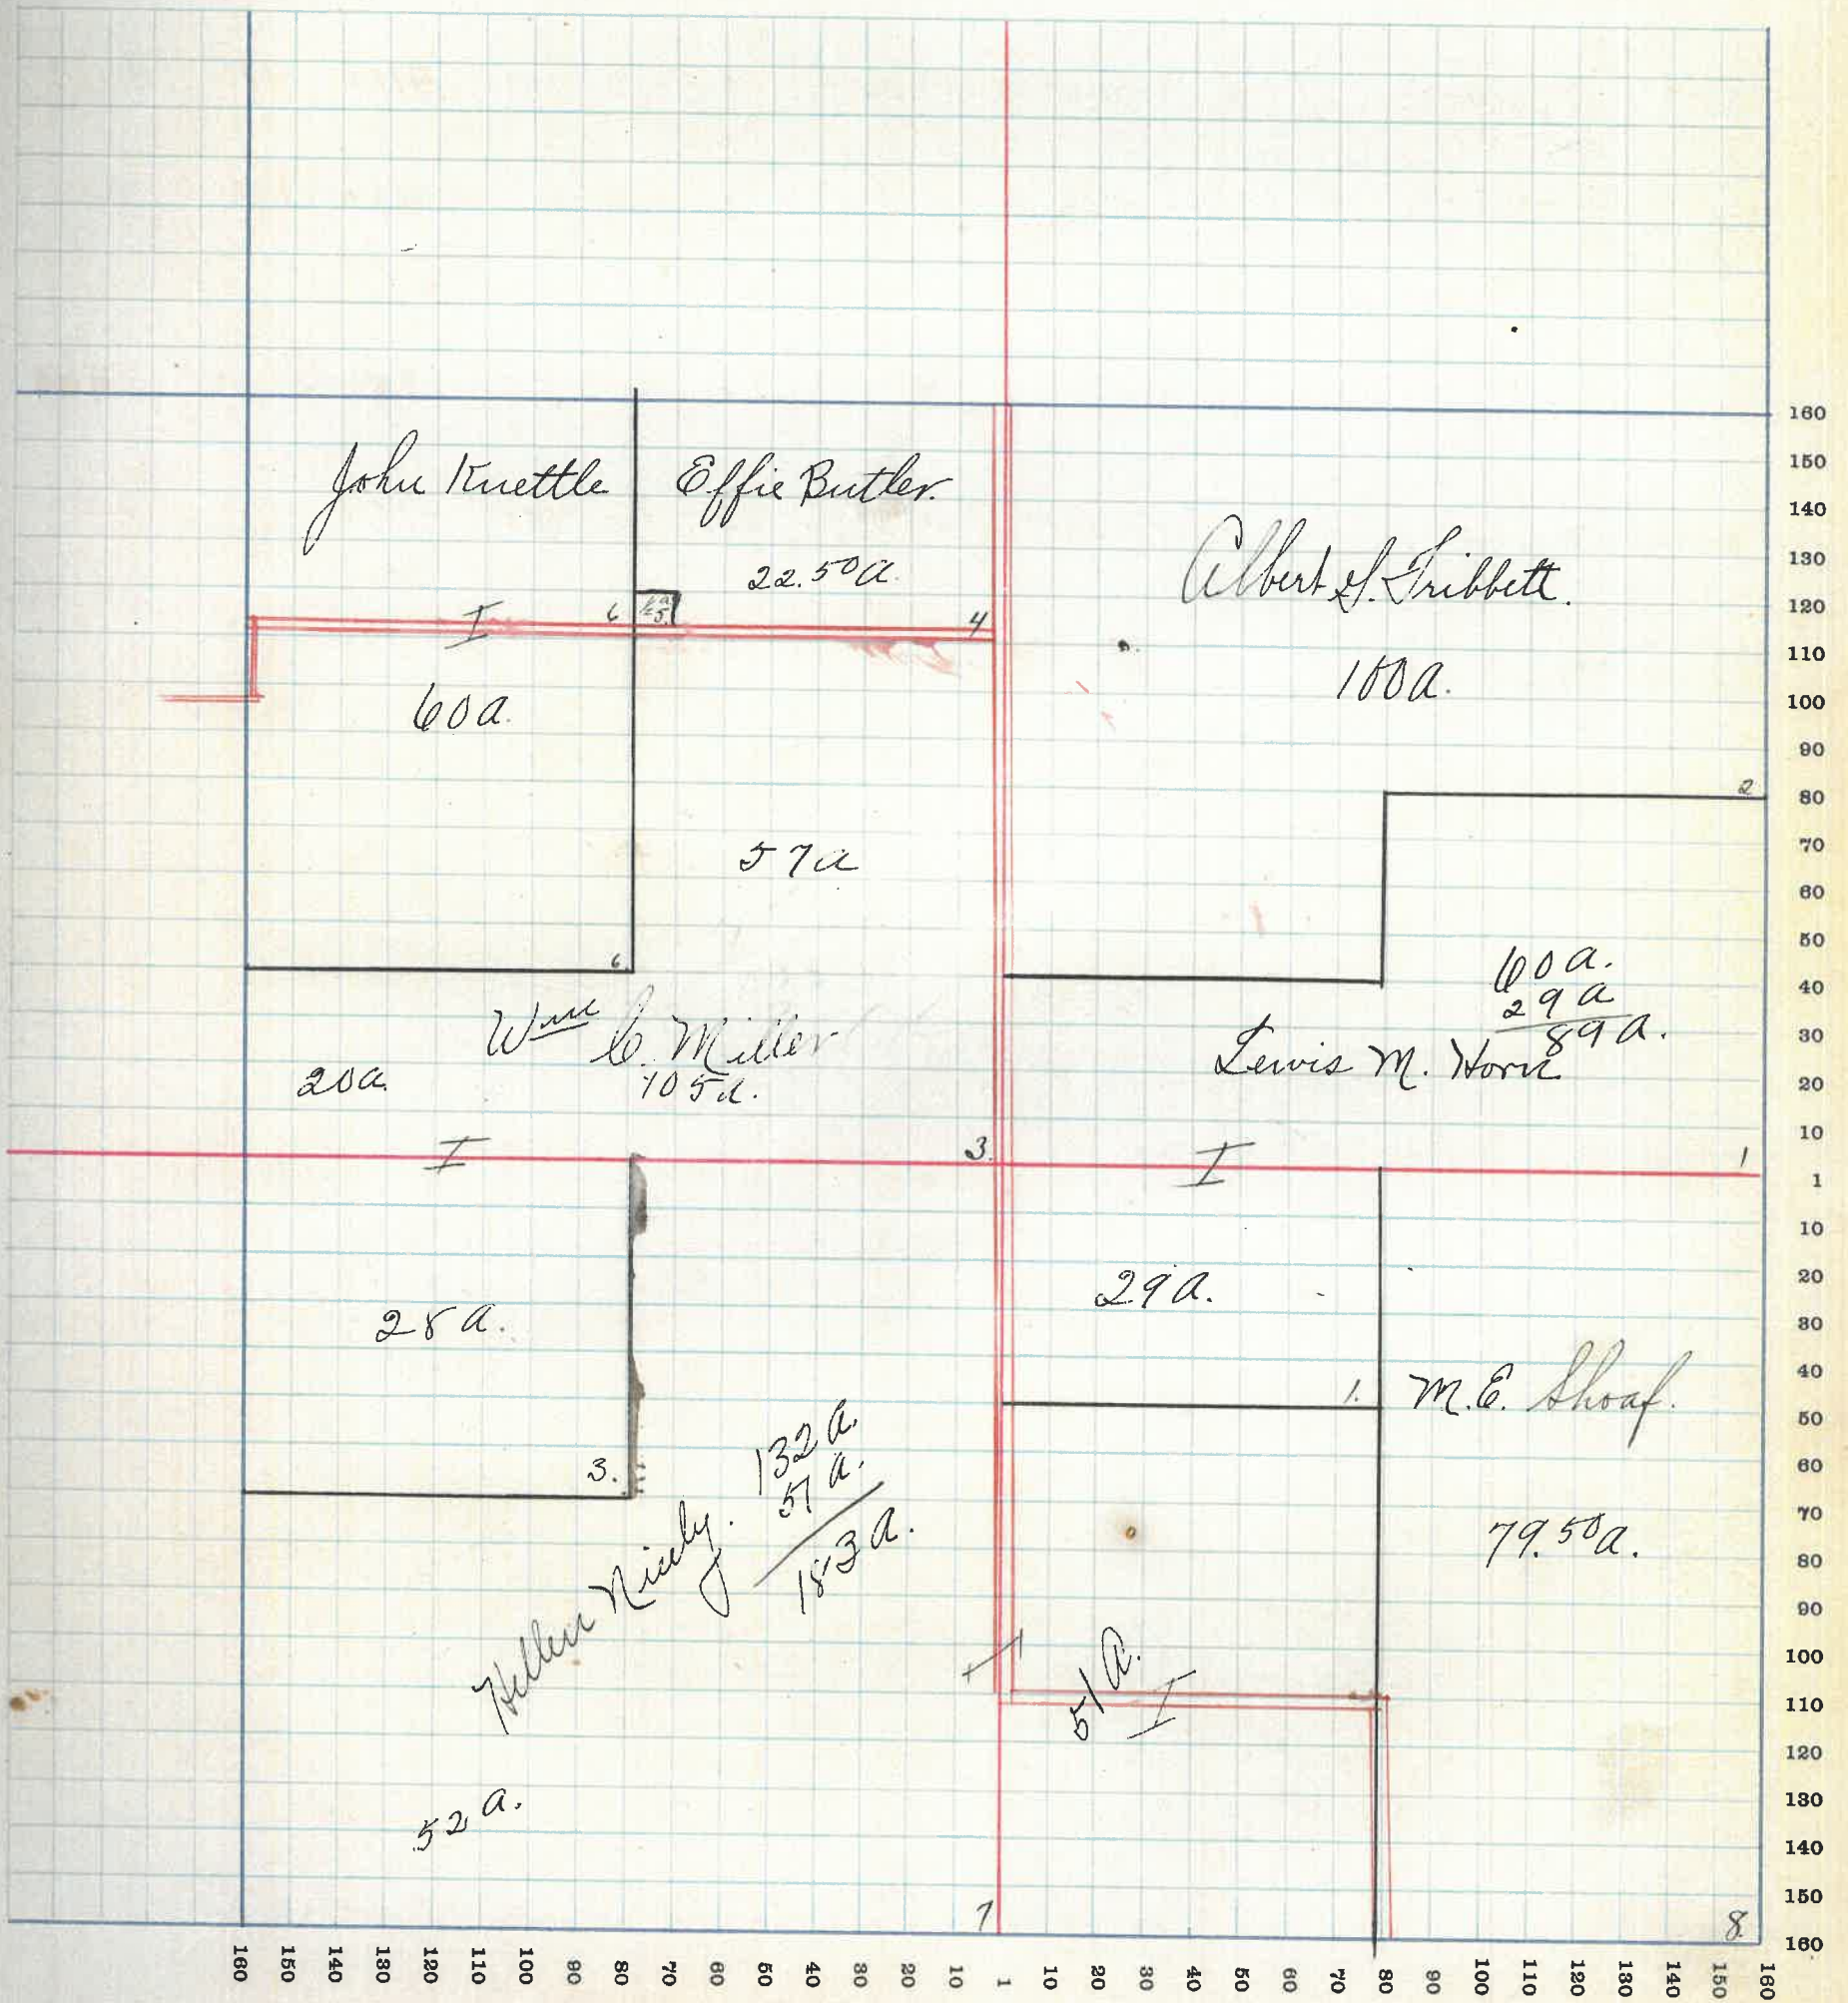 John Knettle
Effie Butler.
22.50 a.
Albert S. Tribbett.
100 a.
6
4
I
60 a.
57 a
2
6.
60 a.
29 a
89 a.
Wm C. Miller
105 a.
20 a.
Lewis M. Horn
I
3.
I
1
28 a.
29 a.
3.
1.
M.E. Shoaf.
79.50 a.
Hellen Nicely.
132 a.
51 a.
183 a.
I
51 a.
I
52 a.
7
8.
160
150
140
130
120
110
100
90
80
70
60
50
40
30
20
10
1
10
20
30
40
50
60
70
80
90
100
110
120
130
140
150
160
160 150 140 130 120 110 100 90 80 70 60 50 40 30 20 10 1 10 20 30 40 50 60 70 80 90 100 110 120 130 140 150 160